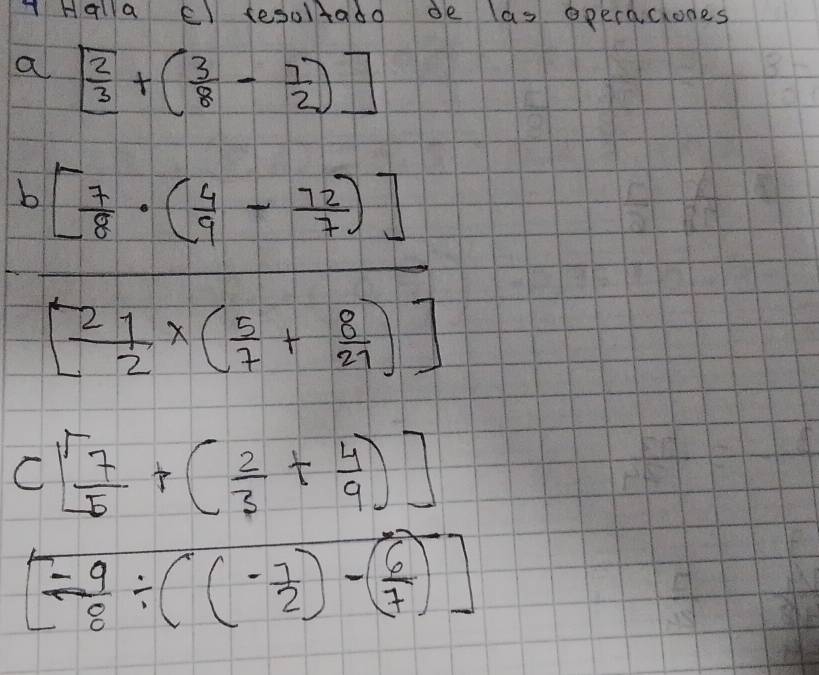 4 Halla El resoltado de las operaciones
a [2/3 + (3/8 - 1/2)]
b [7/8 · (4/9 - 12/7)]
[21/2 x (5/7 + 8/21)]
C [7/5 + (2/3 + 4/9)]
[-9/8 ÷ ((-1/2) - (6/7)]